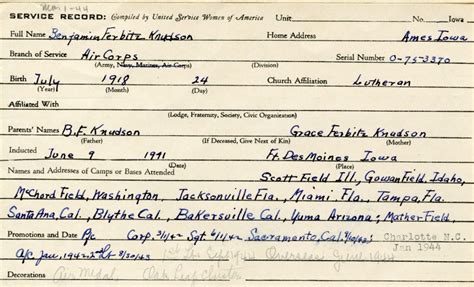 Mar 1-44
SERVICE RECORD: Compiled by United Service Women of America Unit No. Iowa
Full Name Benjamin Ferbitz Knudson Home Address Ames Iowa
Branch of Service Air Corps Serial Number 0-75-3370
(Army, Navy, Marines, Air Corps)
Birth July 1918 24 Church Affiliation Lutheran
(Year) (Month) (Day)
Affiliated With
(Lodge, Fraternity, Society, Civic Organization)
Parents' Names B.F. Knudson Grace Ferbitz Knudson
(Father) (If Deceased, Give Next of Kin) (Mother)
Inducted June 9 1941 Ft. Des Moines Iowa
(Date)
Names and Addresses of Camps or Bases Attended Scott Field Ill, Gowan Field, Idaho,
McChord Field, Washington, Jacksonville Fla., Miami Fla., Tampa, Fla.
Santa Ana, Cal., Blythe Cal., Bakersville Cal., Yuma Arizona; Mather Field,
Promotions and Dates Pfc Corp. 3/1/42 Sgt. 6/1/42 Sacramento, Cal. Charlotte N.C.
Jan 1944
A/c Jan 1942 2nd Lt 8/30/43 1st Lt Overseas June 1944
Decorations Air Medal, Oak Leaf Cluster